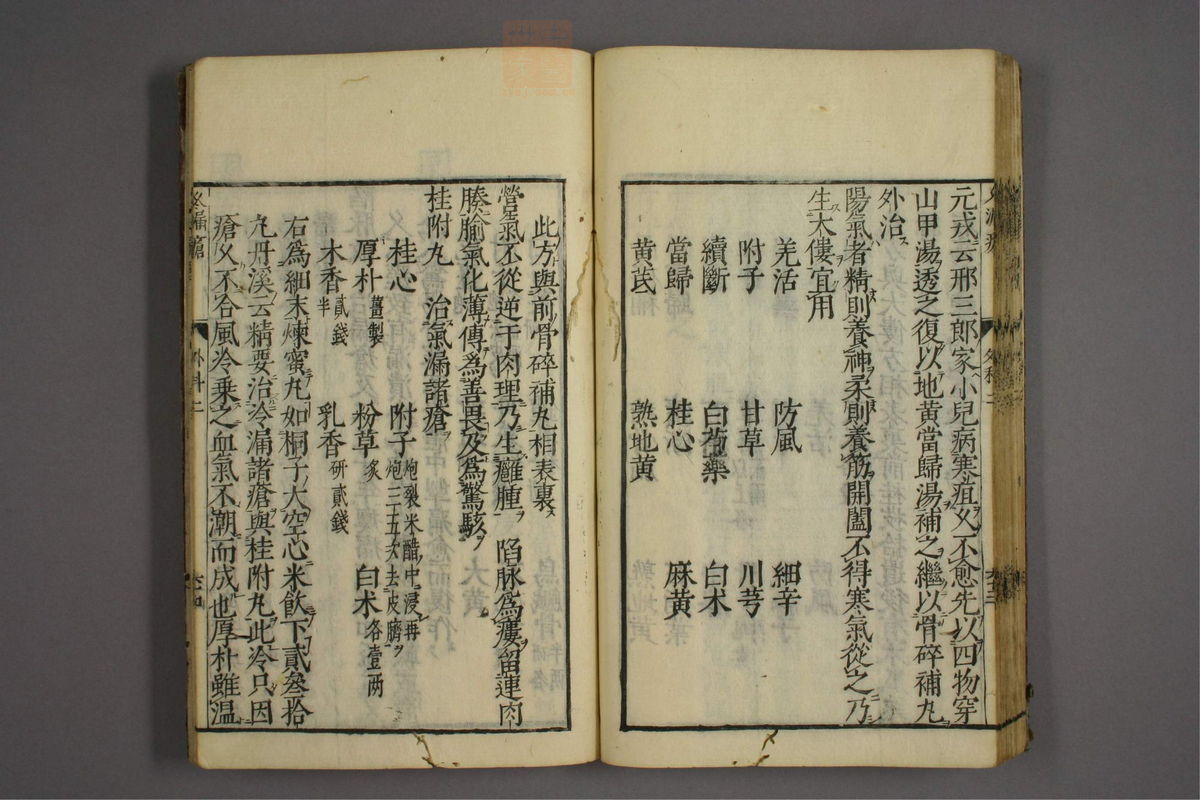 元戎云邢三郎家小兒病寒疽久不愈先以四物穿
山甲湯透之復以地黃當歸湯補之繼以骨碎補丸
外治
陽氣者精則養神柔則養筋開闔不得寒氣從之乃
生大僂宜用
羌活 防風 細辛
附子 甘草 川芎
續斷 白芍藥 白朮
當歸 桂心 麻黃
黃芪 熟地黃
此方與前骨碎補丸相表裏
營氣不從逆于肉理乃生癰腫 陷脉爲瘻留連肉
腠腧氣化薄傳爲善畏及爲驚駭
桂附丸 治氣漏諸瘡
桂心 附子炮裂米醋中浸再炮三五次去皮臍
厚朴薑製 粉草炙 白朮各壹两
木香貳錢半 乳香研貳錢
右爲細末煉蜜丸如桐子大空心米飲下貳叄拾
丸丹溪云精要治冷漏諸瘡與桂附丸此冷只因
瘡久不合風冷乘之血氣不潮而成也厚朴雖温
久漏瘡 外科二